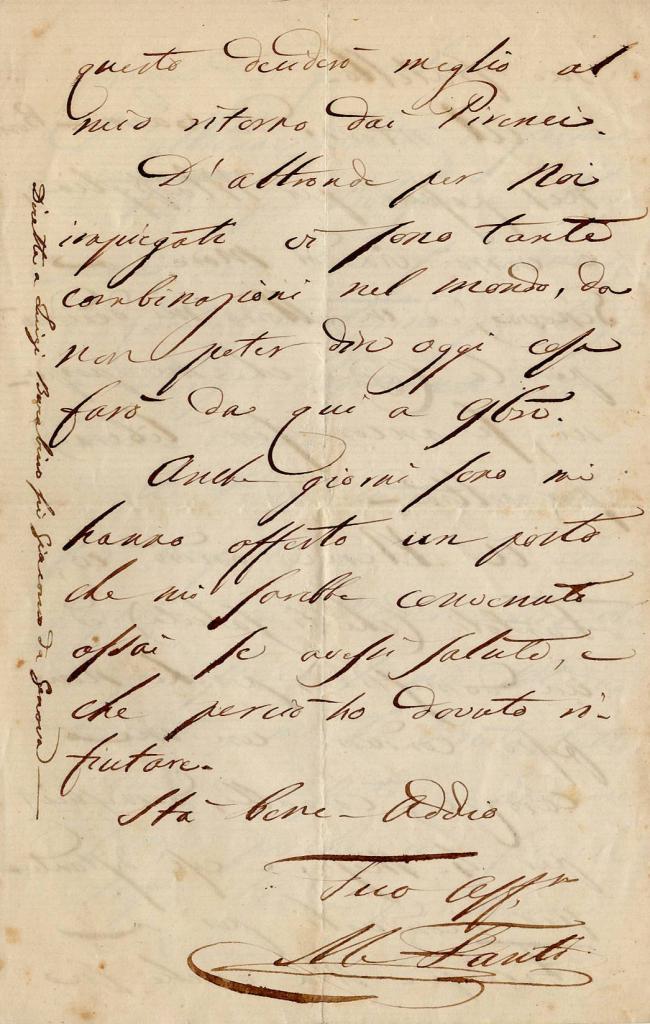 questo deciderò meglio al
mio ritorno dai Pirenei.
D'altronde per Noi
impiegati vi sono tante
combinazioni nel mondo, da
non poter dire oggi cosa
farò da qui a 9bre.
Anche giorni sono mi
hanno offerto un posto
che mi sarebbe convenuto
assai se avessi salute, e
che perciò ho dovuto ri-
fiutare.
Stà bene - Addio
Tuo Aff.
M. Fanti
Diretta a Luigi fu Giacomo da Genova